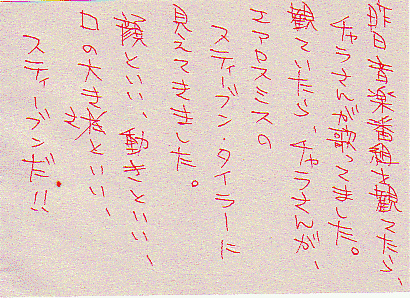 昨日音楽番組を観てたら、
チャラさんが歌ってました。
観ていたら、チャラさんが、
エアロスミスの
スティーブン・タイラーに
見えてきました。
顔といい、動きといい、
口の大きさといい、
スティーブンだ!!